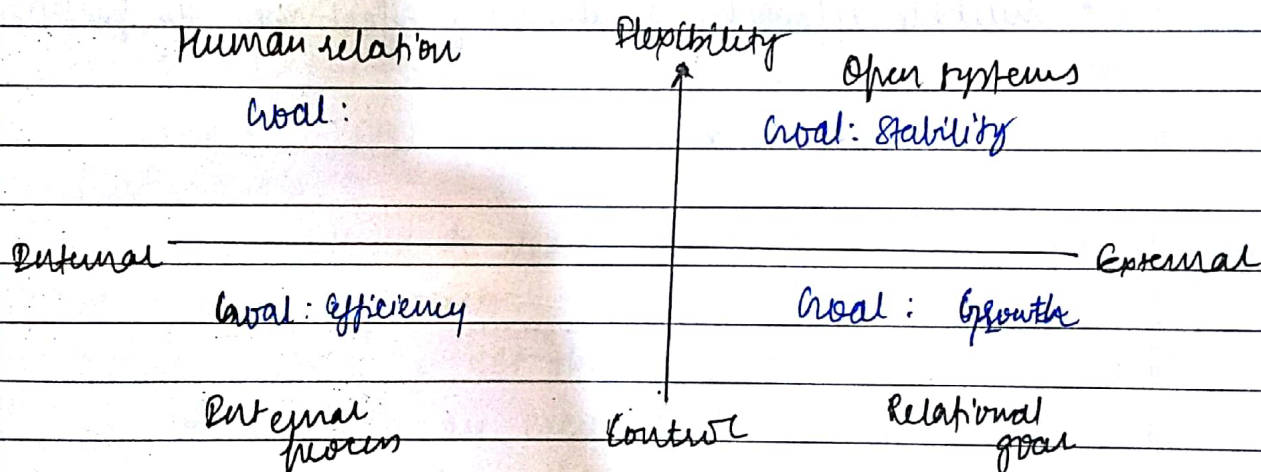 Human relation
Flexibility
Open systems
Goal:
Goal: Stability
Internal
External
Goal: Efficiency
Goal: Growth
Internal
process
Control
Relational
goal